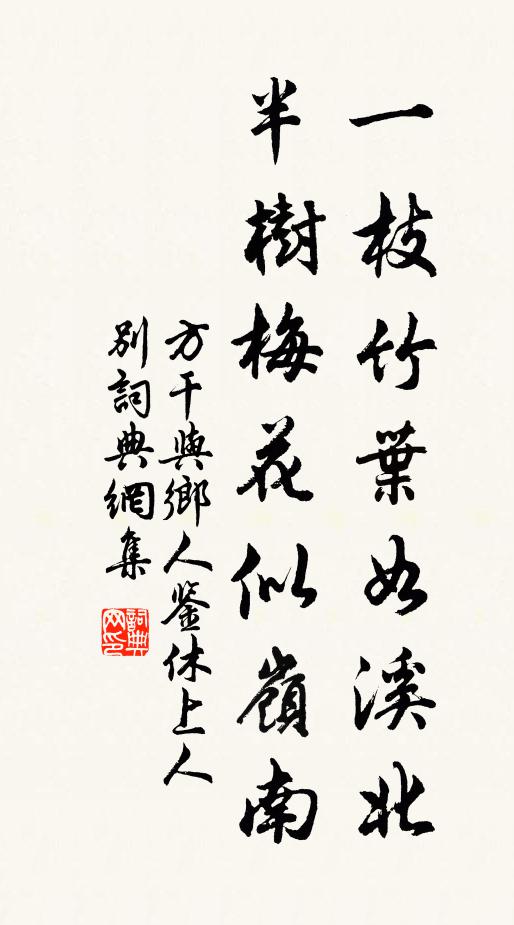 一枝竹葉如溪北
半樹梅花似嶺南
方干與鄉人鉴休上人
别詞典網集
詞典
网印